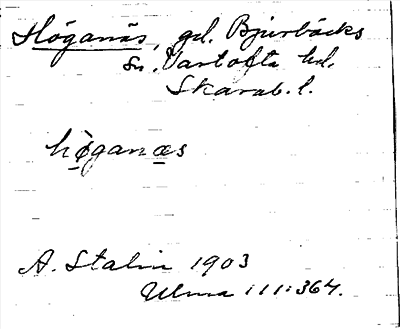 Höganäs, gd. Bjurbäcks
sn. Vartofta hd.
Skarab. l.
hø̀ganæs
A. Stalin 1903
Ulma 111:364.